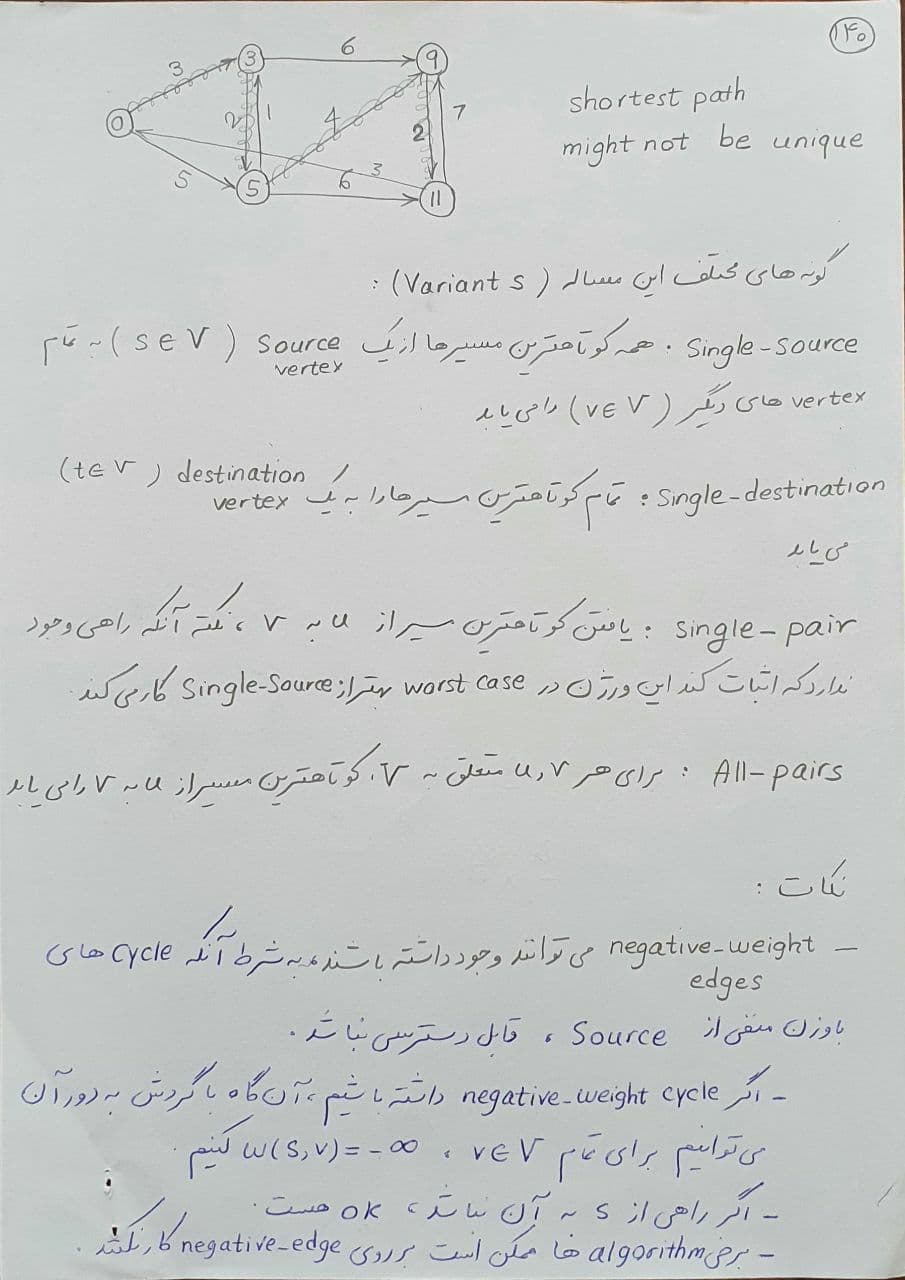 ۱۴۰
3 6 9
3 2 1 4 2 7
0
5 5 6 3 11
shortest path
might not be unique
گونه های مختلف این مساله (Variants) :
Single-source . همه کوتاهترین مسیرها از یک source vertex (s∈V) به تمام
vertex های دیگر (v∈V) را می یابد
Single-destination : تمام کوتاهترین مسیرها را به یک destination vertex (t∈V)
می یابد
single-pair : یافتن کوتاهترین مسیر از u به v ، نکته آنکه راهی وجود
ندارد که اثبات کند این ورژن در worst case بهتر از Single-Source کار می کند .
All-pairs : برای هر u,v متعلق به V، کوتاهترین مسیر از u به v را می یابد
نکات :
– negative-weight edges می توانند وجود داشته باشند، به شرط آنکه cycle های
با وزن منفی از Source ، قابل دسترسی نباشد .
- اگر negative-weight cycle داشته باشیم ، آن گاه با گردش به دور آن
می توانیم برای تمام v∈V ، w(s,v)=-∞ کنیم .
- اگر راهی از s به آن نباشد ، ok هست .
- برخی algorithm ها ممکن است بر روی negative-edge کار نکنند .